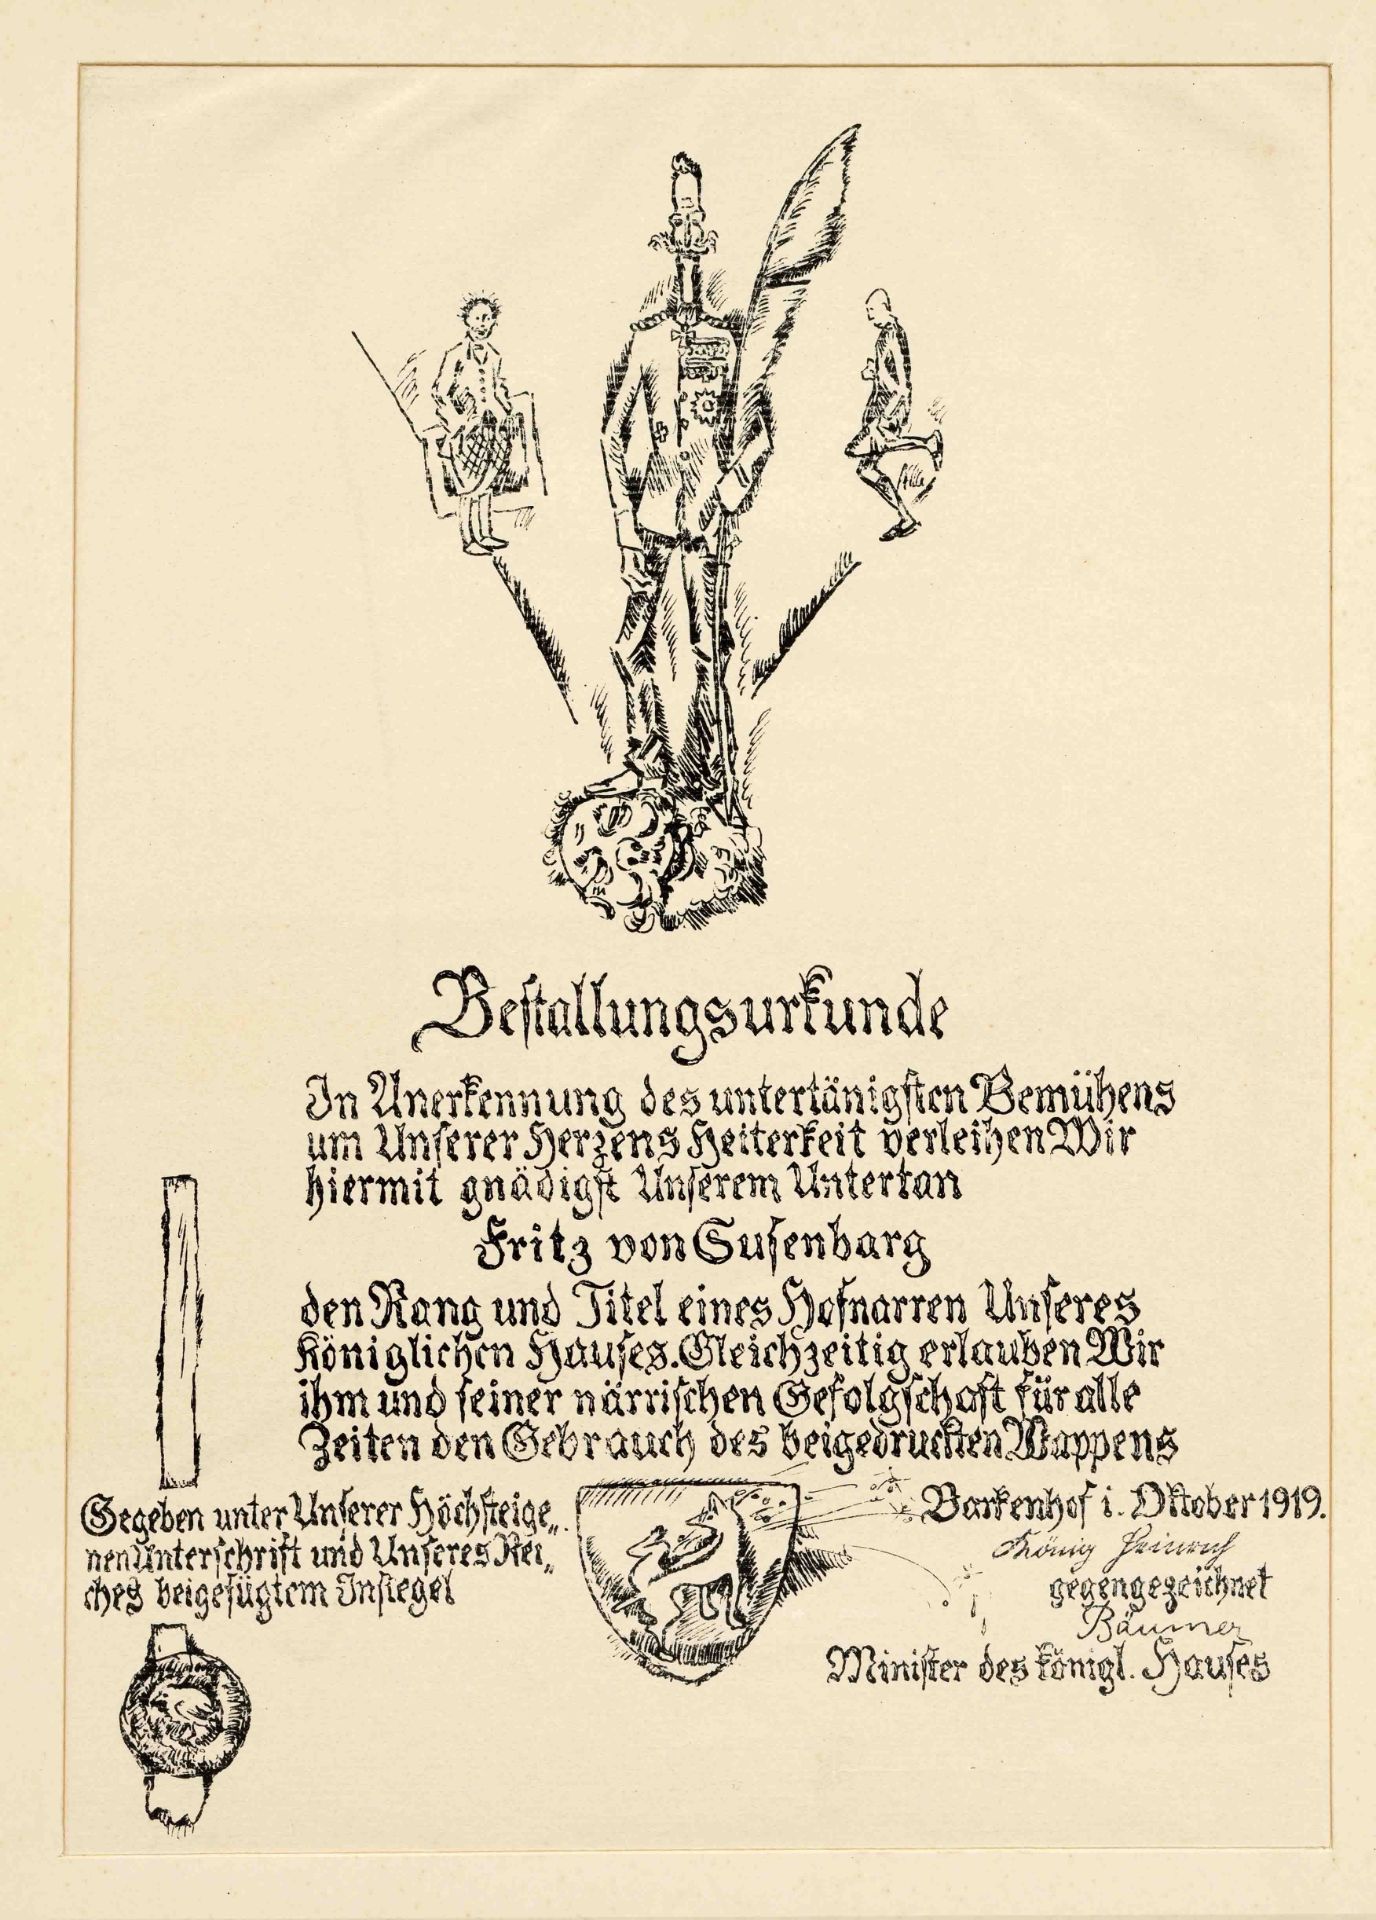 Bestallungsurkunde
In Anerkennung des untertänigsten Bemühens
um Unserer Herzens Heiterkeit verleihen Wir
hiermit gnädigst Unserem Untertan
Fritz von Susenbarg
den Rang und Titel eines Hofnarren Unseres
Königlichen Hauses. Gleichzeitig erlauben Wir
ihm und seiner närrischen Gefolgschaft für alle
Zeiten den Gebrauch des beigedruckten Wappens
Gegeben unter Unserer Höchsteige„
nen Unterschrift und Unseres Rei„
ches beigefügtem Insiegel
Barkenhof i. Oktober 1919.
König Heinrich
gegengezeichnet
Bäumer
Minister des königl. Hauses